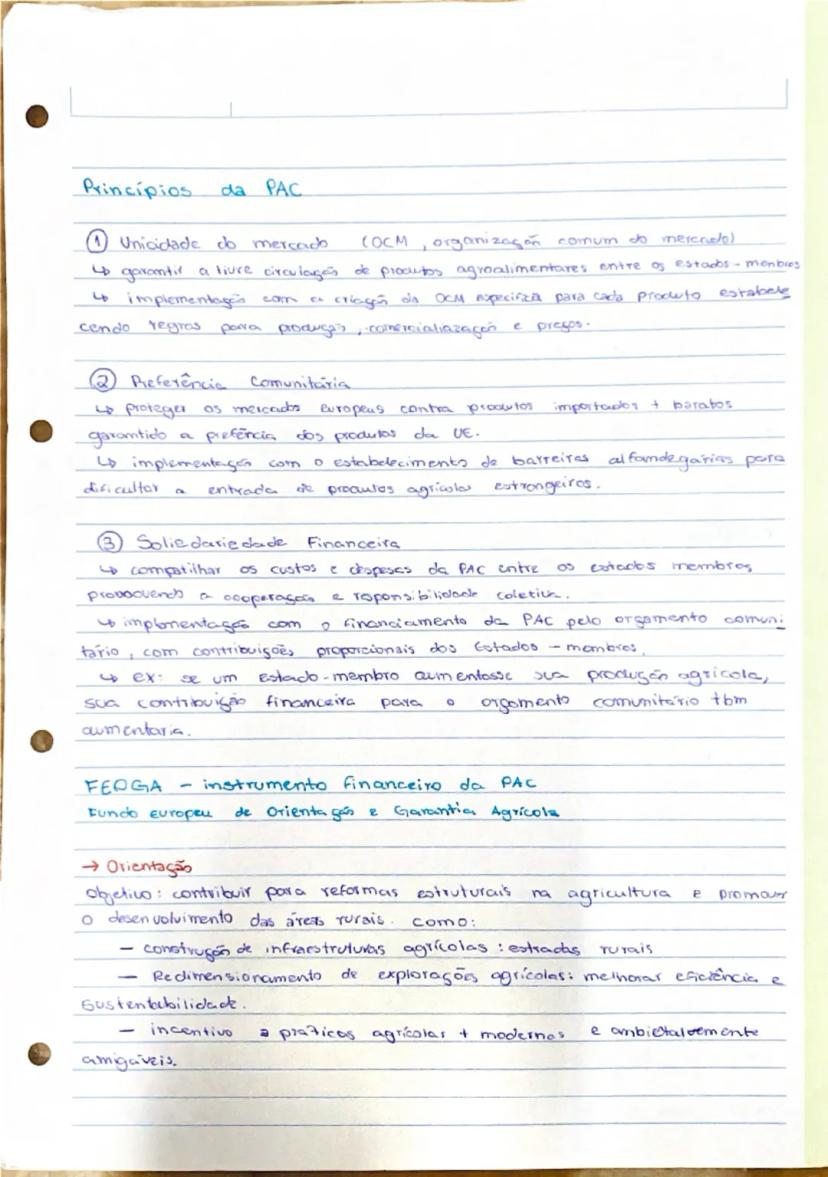 Princípios da PAC
① Unicidade do mercado (OCM, organização comum do mercado)
↳ garantir a livre circulação de produtos agroalimentares entre os estados-menbros
↳ implementação com a criação da OCM específica para cada produto estabele
cendo regras para produção, comercialiazação e preços.
② Preferência Comunitária
↳ proteger os mercados europeus contra produtos importados + baratos
garantido a prefência dos produtos da UE.
↳ implementação com o estabelecimento de barreiras alfandegárias para
dificultar a entrada de produtos agrícolas estrangeiros.
③ Soliedariedade Financeira
↳ compatilhar os custos e despesas da PAC entre os estados membros,
promovendo a cooperação e responsibilidade coletiva.
↳ implmentação com o financiamento da PAC pelo orçamento comuni
tário, com contribuições proporcionais dos Estados - membros.
↳ ex: se um estado-membro aumentasse sua produção agrícola,
sua contribuição financeira para o orçamento comunitário tbm
aumentaria.
FEOGA - instrumento financeiro da PAC
Fundo europeu de Orientação e Garantia Agrícola
→ Orientação
Objetivo: contribuir para reformas estruturais na agricultura e promover
o desenvolvimento das áreas rurais. como:
- construção de infraestruturas agrícolas: estradas rurais
- Redimensionamento de explorações agrícolas: melhorar eficiência e
sustentabilidade.
- incentivo a práticas agrícolas + modernas e ambietalvemente
amigáveis.